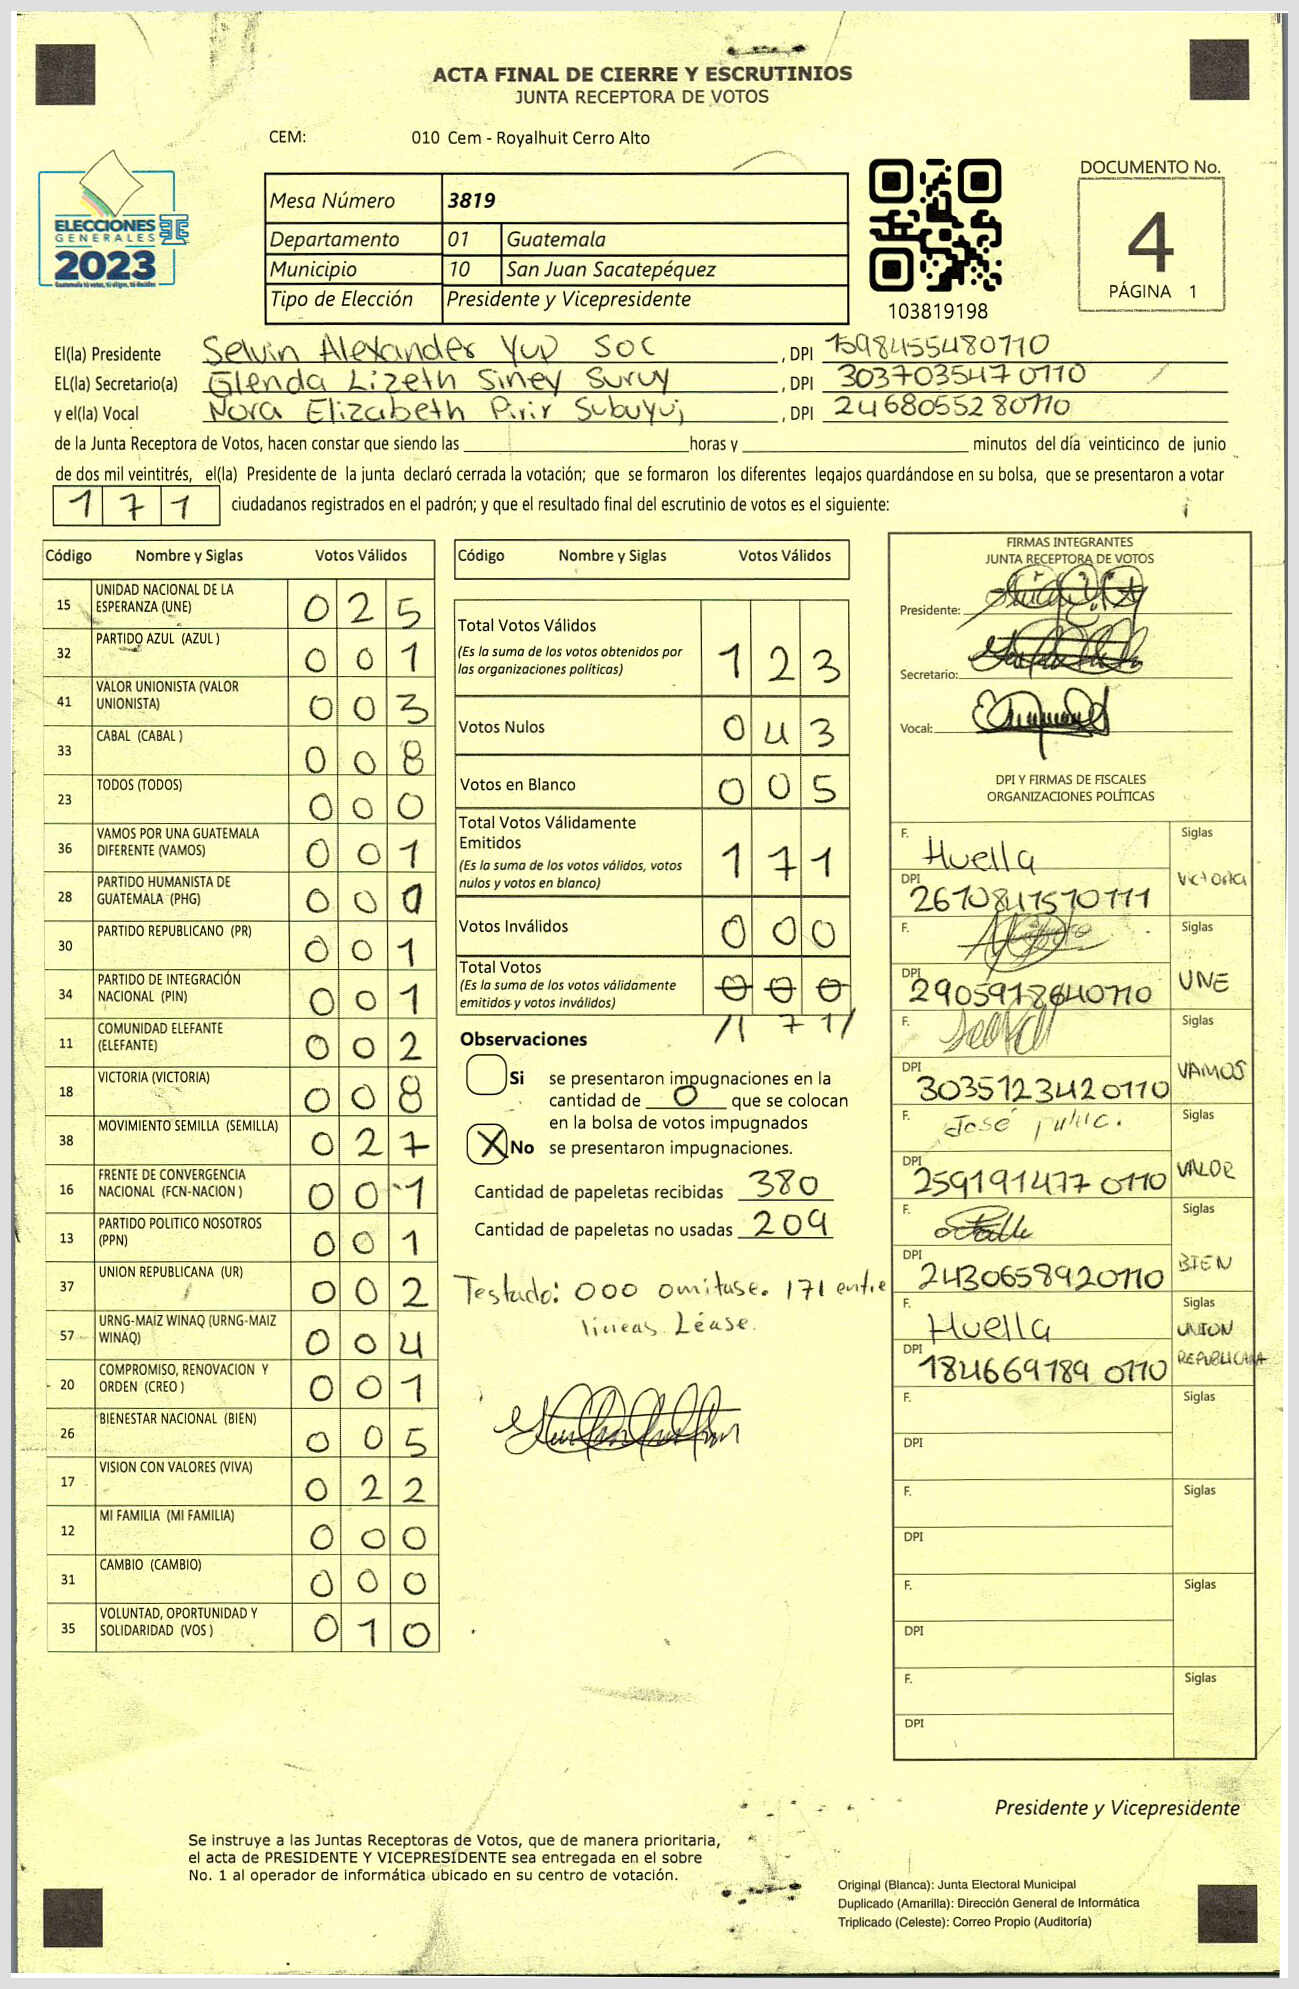 ACTA FINAL DE CIERRE Y ESCRUTINIOS
JUNTA RECEPTORA DE VOTOS
CEM: 010 Cem - Royalhuit Cerro Alto
ELECCIONES
GENERALES
2023
Guatemala tú votas, tú eliges, tú decides
Mesa Número 3819
Departamento 01 Guatemala
Municipio 10 San Juan Sacatepéquez
Tipo de Elección Presidente y Vicepresidente
103819198
DOCUMENTO No.
4
PÁGINA 1
El(la) Presidente Selvin Alexander Yup Soc, DPI 1598455480110
EL(la) Secretario(a) Glenda Lizeth Siney Suruy, DPI 3037035470110
y el(la) Vocal Nora Elizabeth Pirir Subuyuj, DPI 2468055280110
de la Junta Receptora de Votos, hacen constar que siendo las horas y minutos del día veinticinco de junio
de dos mil veintitrés, el(la) Presidente de la junta declaró cerrada la votación; que se formaron los diferentes legajos quardándose en su bolsa, que se presentaron a votar
171 ciudadanos registrados en el padrón; y que el resultado final del escrutinio de votos es el siguiente:
Código Nombre y Siglas Votos Válidos
15 UNIDAD NACIONAL DE LA
ESPERANZA (UNE) 025
32 PARTIDO AZUL (AZUL ) 001
41 VALOR UNIONISTA (VALOR
UNIONISTA) 003
33 CABAL (CABAL ) 008
23 TODOS (TODOS) 000
36 VAMOS POR UNA GUATEMALA
DIFERENTE (VAMOS) 001
28 PARTIDO HUMANISTA DE
GUATEMALA (PHG) 00
30 PARTIDO REPUBLICANO (PR) 001
34 PARTIDO DE INTEGRACIÓN
NACIONAL (PIN) 001
11 COMUNIDAD ELEFANTE
(ELEFANTE) 002
18 VICTORIA (VICTORIA) 008
38 MOVIMIENTO SEMILLA (SEMILLA) 027
16 FRENTE DE CONVERGENCIA
NACIONAL (FCN-NACION ) 001
13 PARTIDO POLITICO NOSOTROS
(PPN) 001
37 UNION REPUBLICANA (UR) 002
57 URNG-MAIZ WINAQ (URNG-MAIZ
WINAQ) 004
20 COMPROMISO, RENOVACION Y
ORDEN (CREO ) 001
26 BIENESTAR NACIONAL (BIEN) 005
17 VISION CON VALORES (VIVA) 022
12 MI FAMILIA (MI FAMILIA) 000
31 CAMBIO (CAMBIO) 000
35 VOLUNTAD, OPORTUNIDAD Y
SOLIDARIDAD (VOS ) 010
Código Nombre y Siglas Votos Válidos
Total Votos Válidos
(Es la suma de los votos obtenidos por
las organizaciones políticas) 123
Votos Nulos 043
Votos en Blanco 005
Total Votos Válidamente
Emitidos
(Es la suma de los votos válidos, votos
nulos y votos en blanco) 171
Votos Inválidos 000
Total Votos
(Es la suma de los votos válidamente
emitidos y votos inválidos) 000
/171/
Observaciones
Si se presentaron impugnaciones en la
cantidad de 0 que se colocan
en la bolsa de votos impugnados
X No se presentaron impugnaciones.
Cantidad de papeletas recibidas 380
Cantidad de papeletas no usadas 209
Testado: 000 omitase. 171 entre
lineas. Léase.
FIRMAS INTEGRANTES
JUNTA RECEPTORA DE VOTOS
Presidente:
Secretario:
Vocal:
DPI Y FIRMAS DE FISCALES
ORGANIZACIONES POLÍTICAS
F. Huella Siglas
DPI 2670841570111 Victoria
F. Siglas
DPI 2905978640110 UNE
F. Siglas
DPI 3035123420110 VAMOS
F. José Siglas
DPI 2591914770110 VALOR
F. Siglas
DPI 2430658920110 BIEN
F. Huella Siglas
DPI 1846697890110 UNION
REPUBLICANA
F. Siglas
DPI
F. Siglas
DPI
F. Siglas
DPI
F. Siglas
DPI
Presidente y Vicepresidente
Se instruye a las Juntas Receptoras de Votos, que de manera prioritaria,
el acta de PRESIDENTE Y VICEPRESIDENTE sea entregada en el sobre
No. 1 al operador de informática ubicado en su centro de votación.
Original (Blanca): Junta Electoral Municipal
Duplicado (Amarilla): Dirección General de Informática
Triplicado (Celeste): Correo Propio (Auditoría)